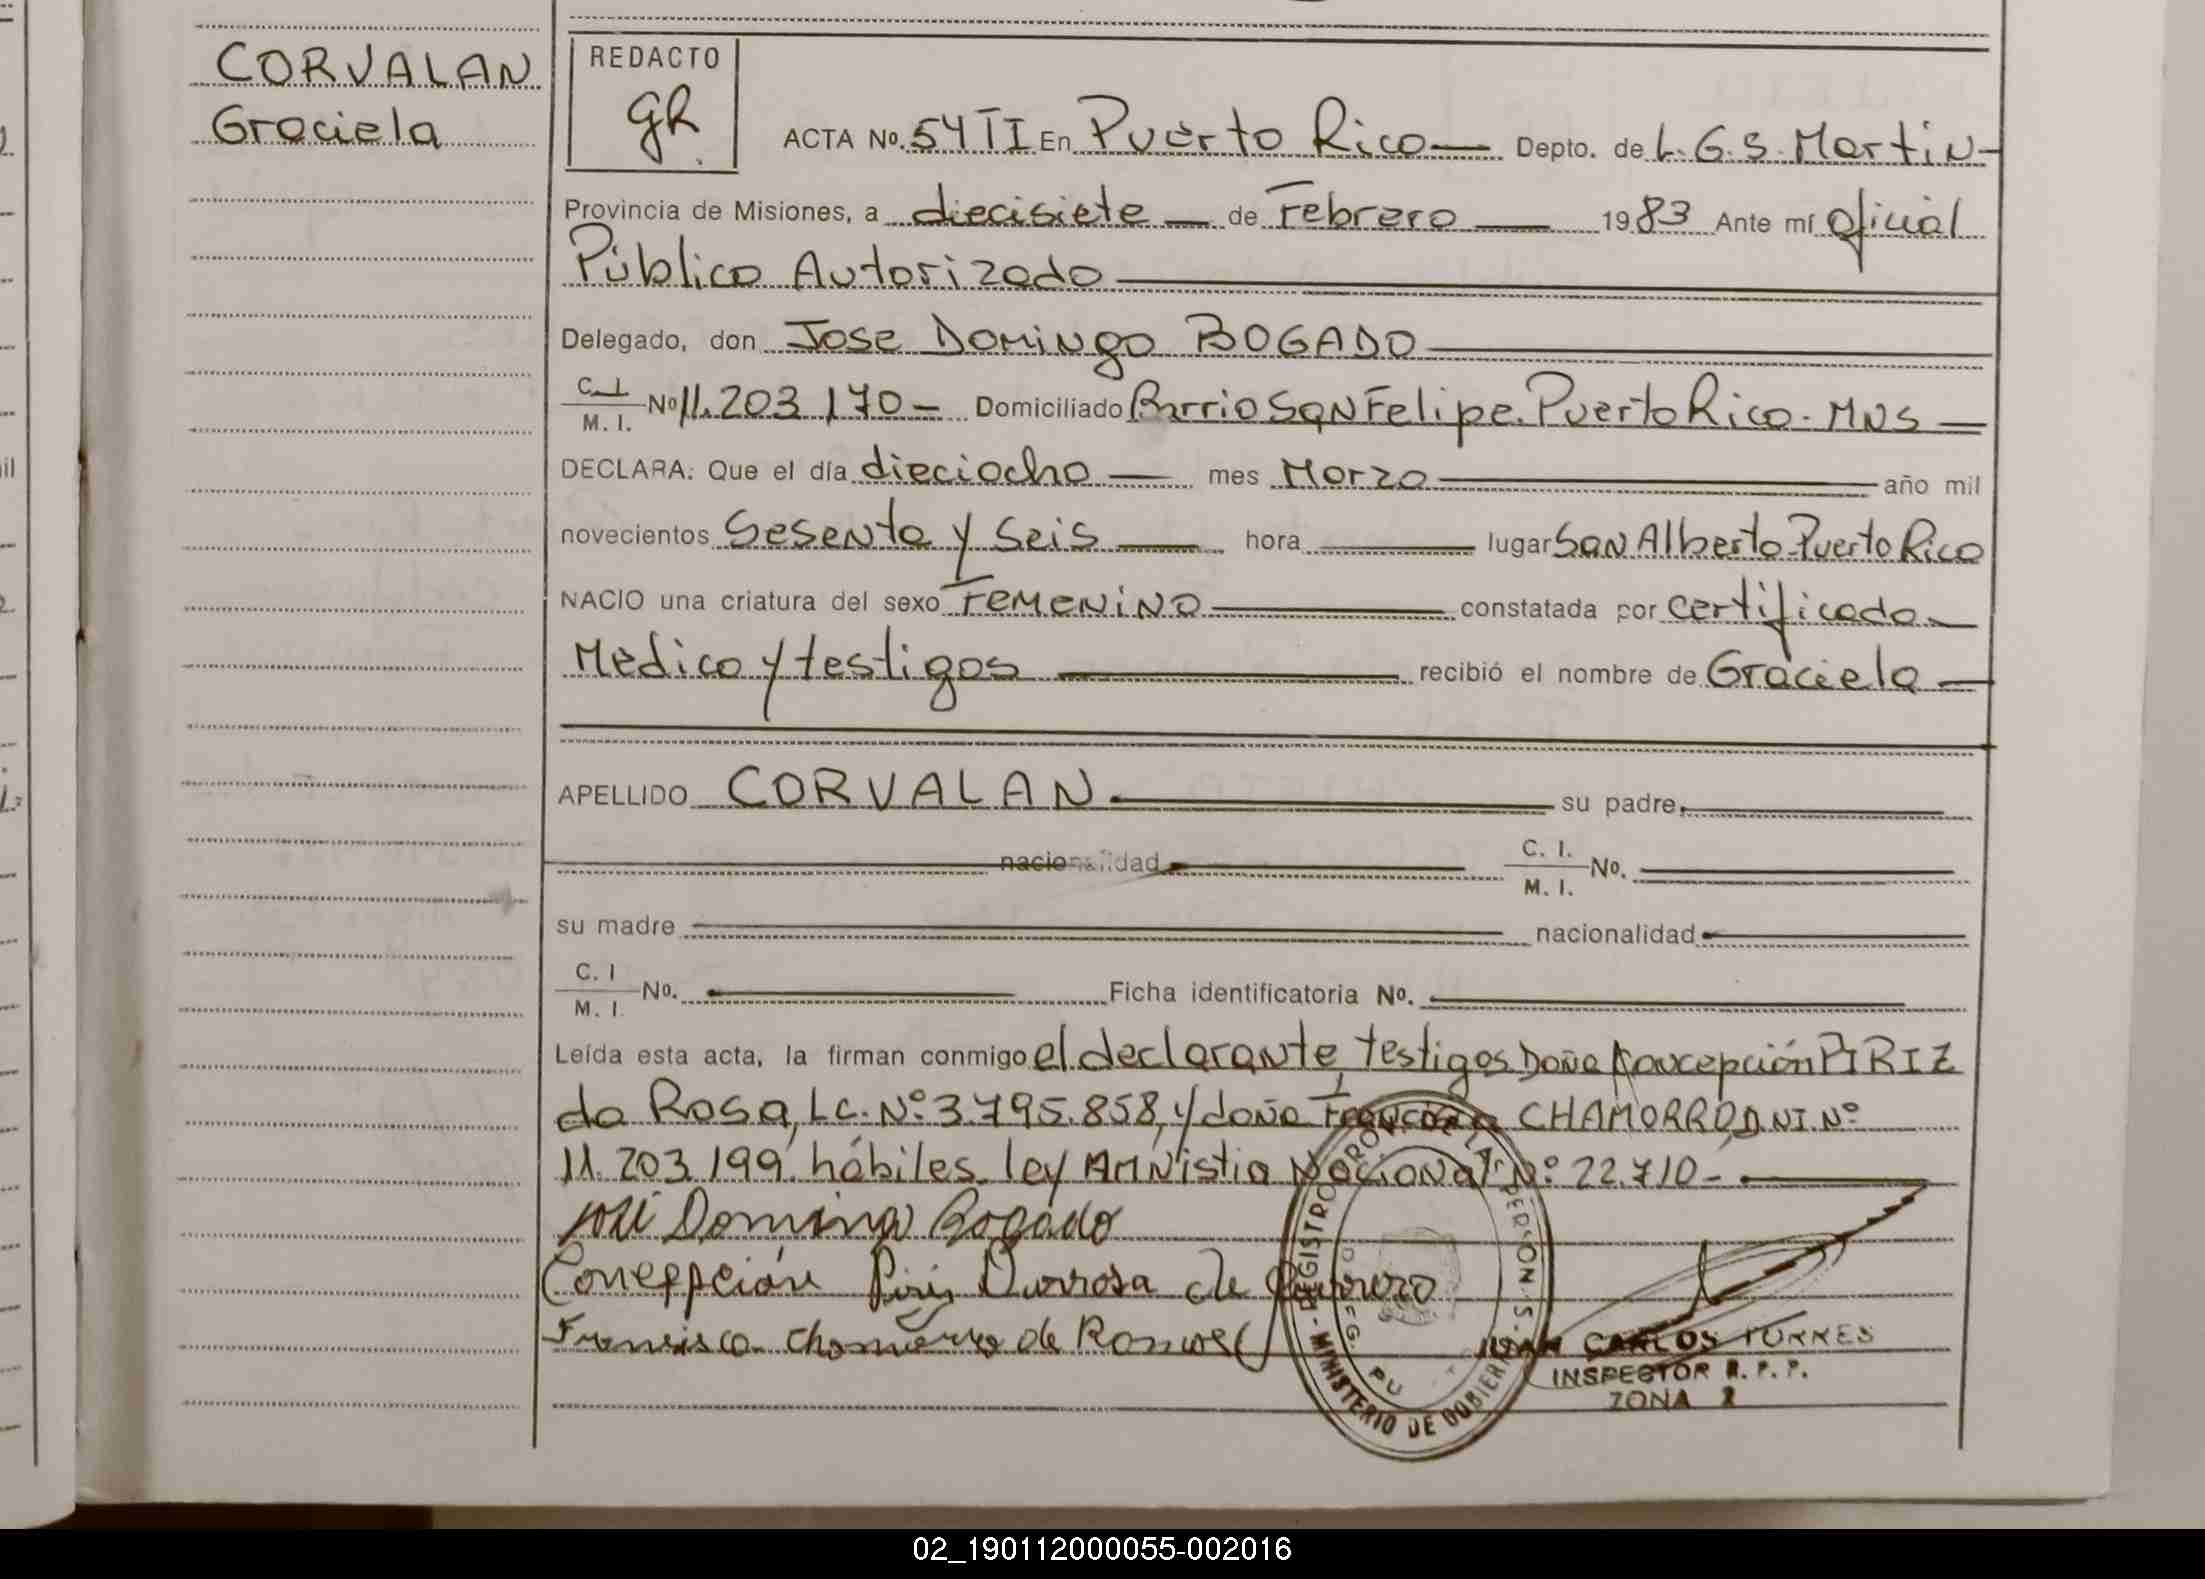 CORVALAN
Graciela
REDACTO
gR
ACTA No. 54 TI En Puerto Rico Depto. de L. G. S. Martin
Provincia de Misiones, a diecisiete de Febrero 1983 Ante mí oficial
Público Autorizado
Delegado, don Jose Domingo BOGADO
C. I. M. I. No 11.203.170 Domiciliado Barrio San Felipe. Puerto Rico. MNS
DECLARA: Que el día dieciocho mes Marzo año mil
novecientos Sesenta y Seis hora lugar San Alberto Puerto Rico
NACIO una criatura del sexo Femenino constatada por certificado
Médico y testigos recibió el nombre de Graciela
APELLIDO CORVALAN su padre,
nacionalidad C. I. M. I. No.
su madre nacionalidad
C. I M. I. No. Ficha identificatoria No.
Leída esta acta, la firman conmigo el declarante, testigos Doña Concepción PIRIZ
da Rosa, L.C. Nº 3.795.858, y doña Francisca CHAMORRO, D.N.I. Nº
11.203.199. hábiles. ley AMNistia Nacional Nº 22.710
José Domingo Bogado
Concepción Piris Darrosa de
Francisca Chamorro de
REGISTRO PERSONAS - MINISTERIO DE GOBIERNO
JUAN CARLOS TORRES
INSPECTOR R. P. P.
ZONA 2
02_190112000055-002016